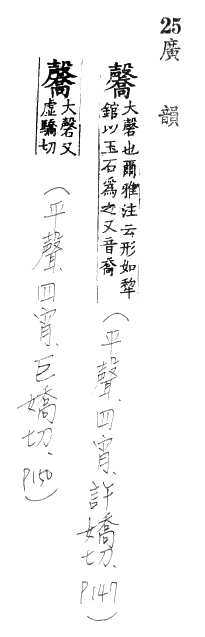 25 廣韻
毊大磬也爾雅注云形如犂
錧以玉石爲之又音喬
(平聲、四宵、許嬌切、P.147)
毊大磬又
虛驕切
(平聲、四宵、巨嬌切、P150)